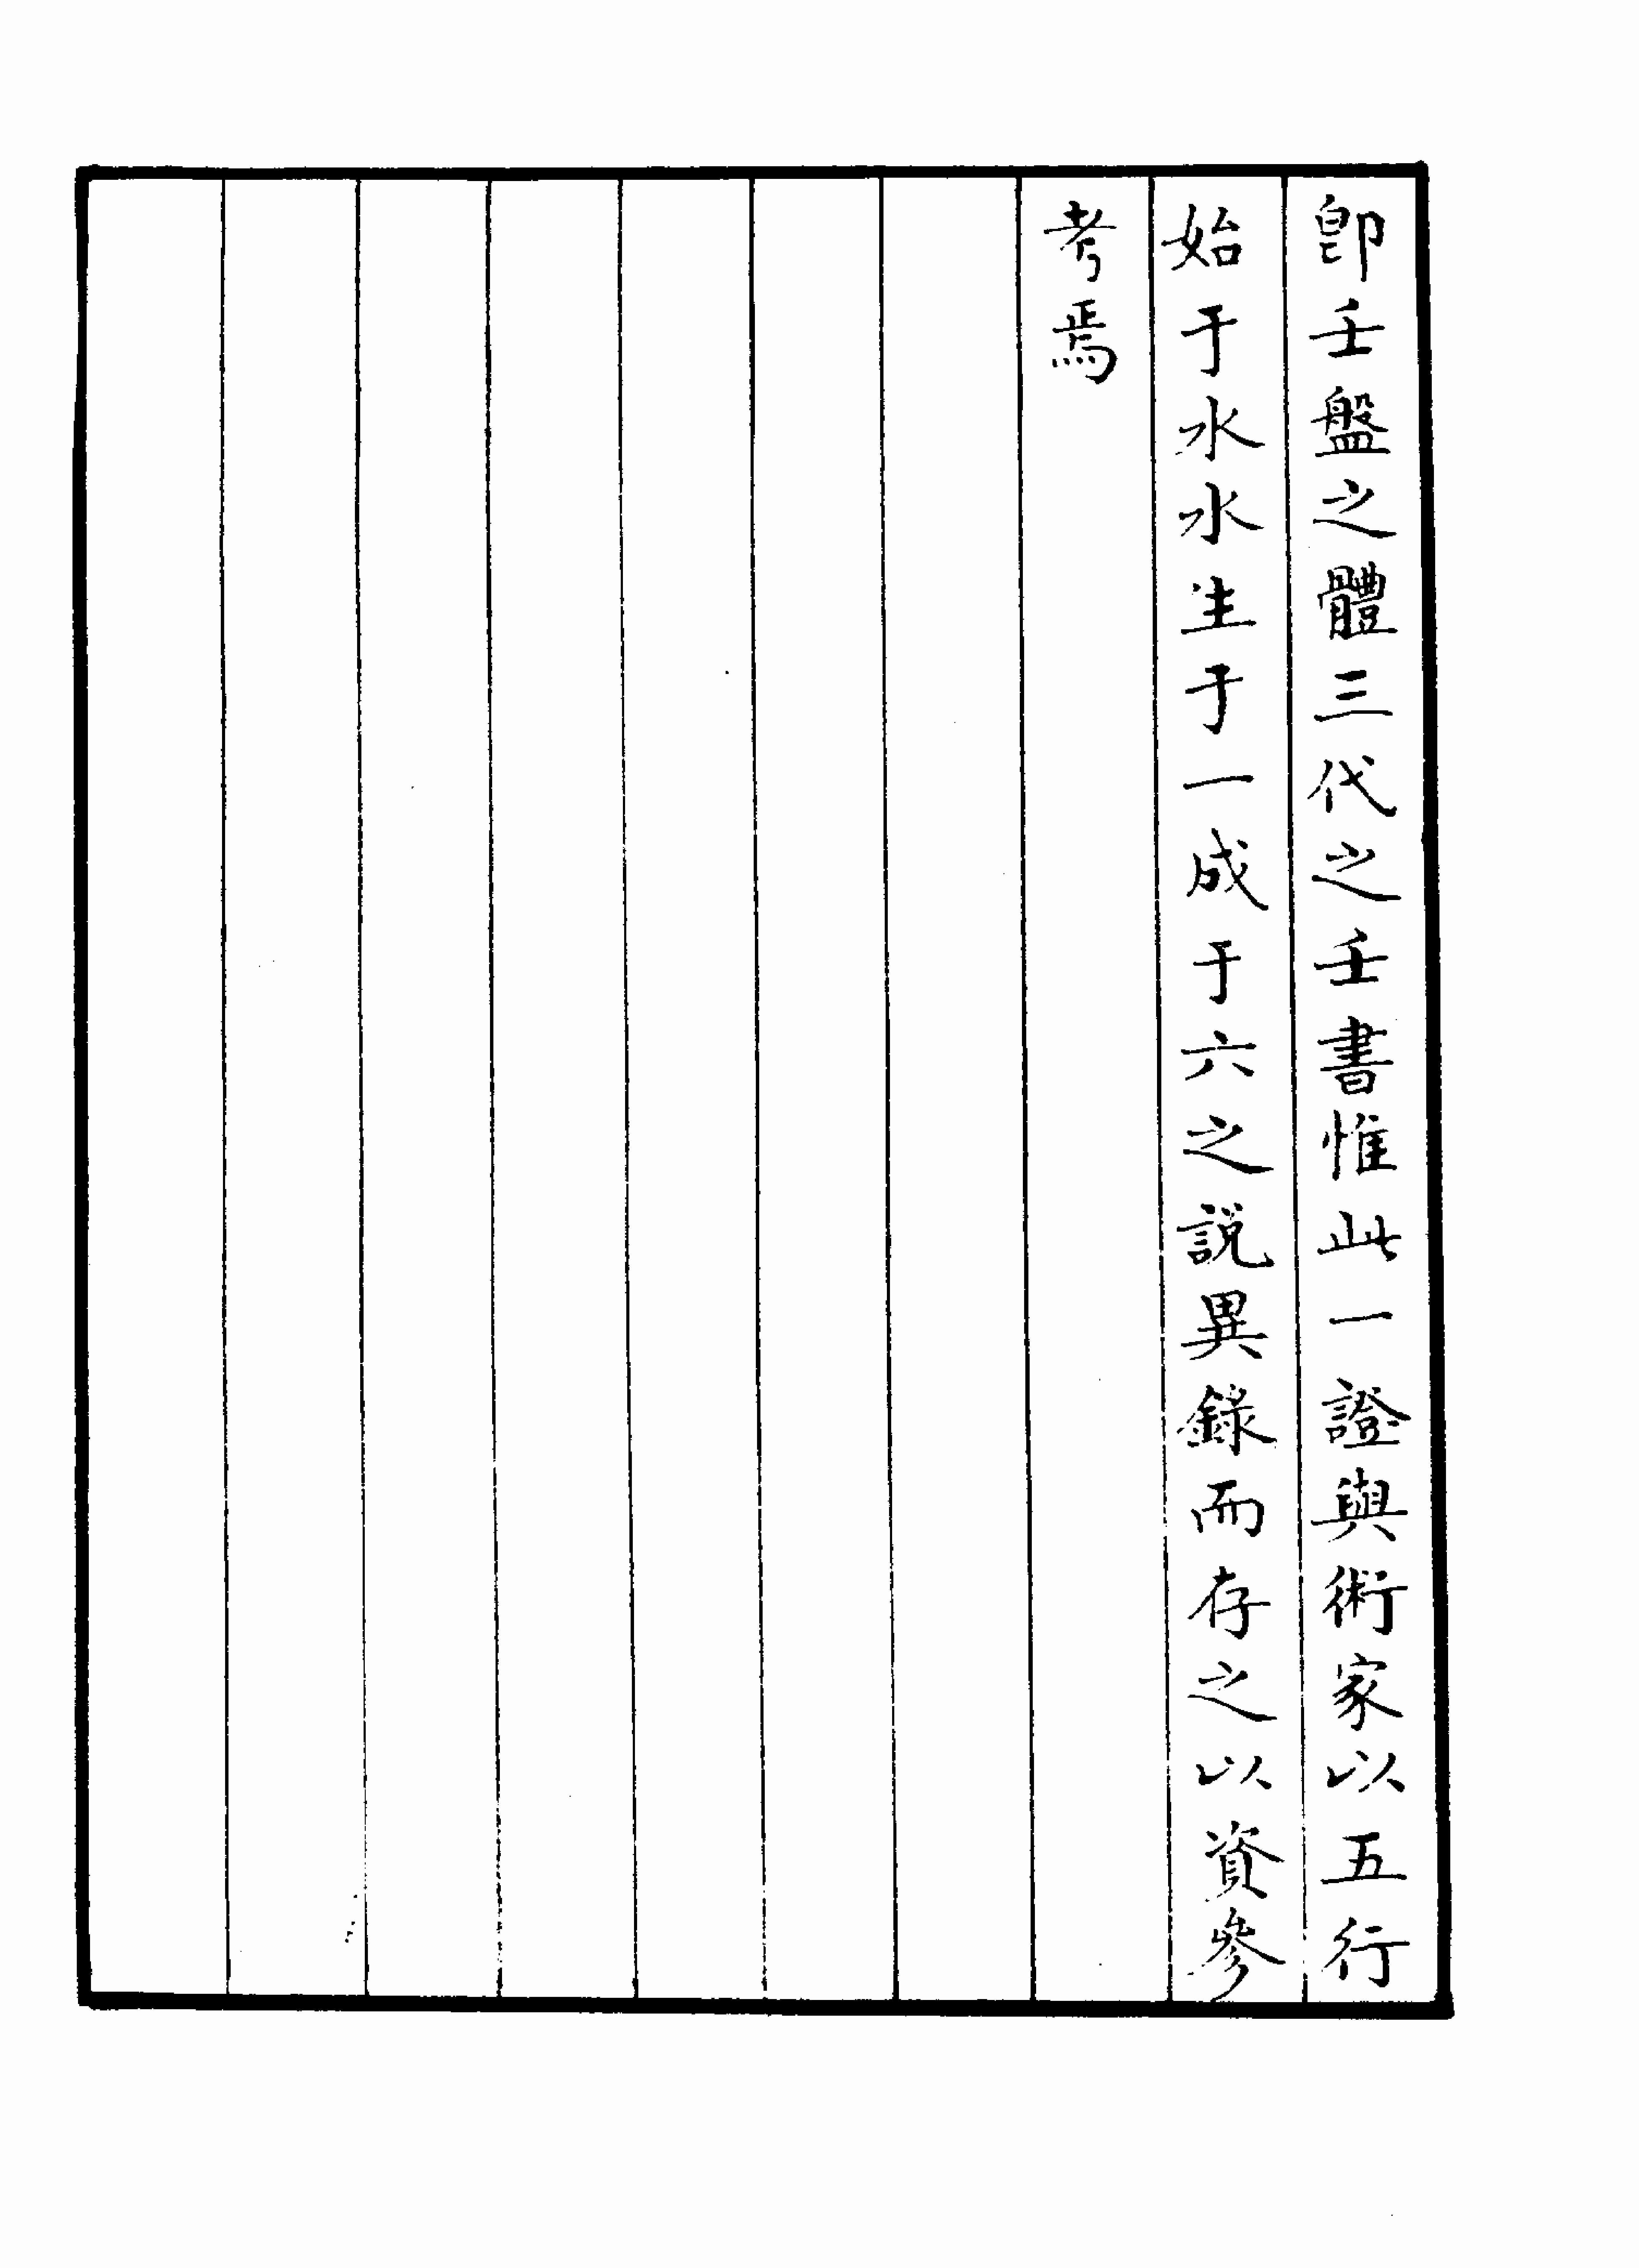 卽壬盤之體三代之壬書惟此一證與術家以五行
始于水水生于一成于六之說異錄而存之以資參
考焉